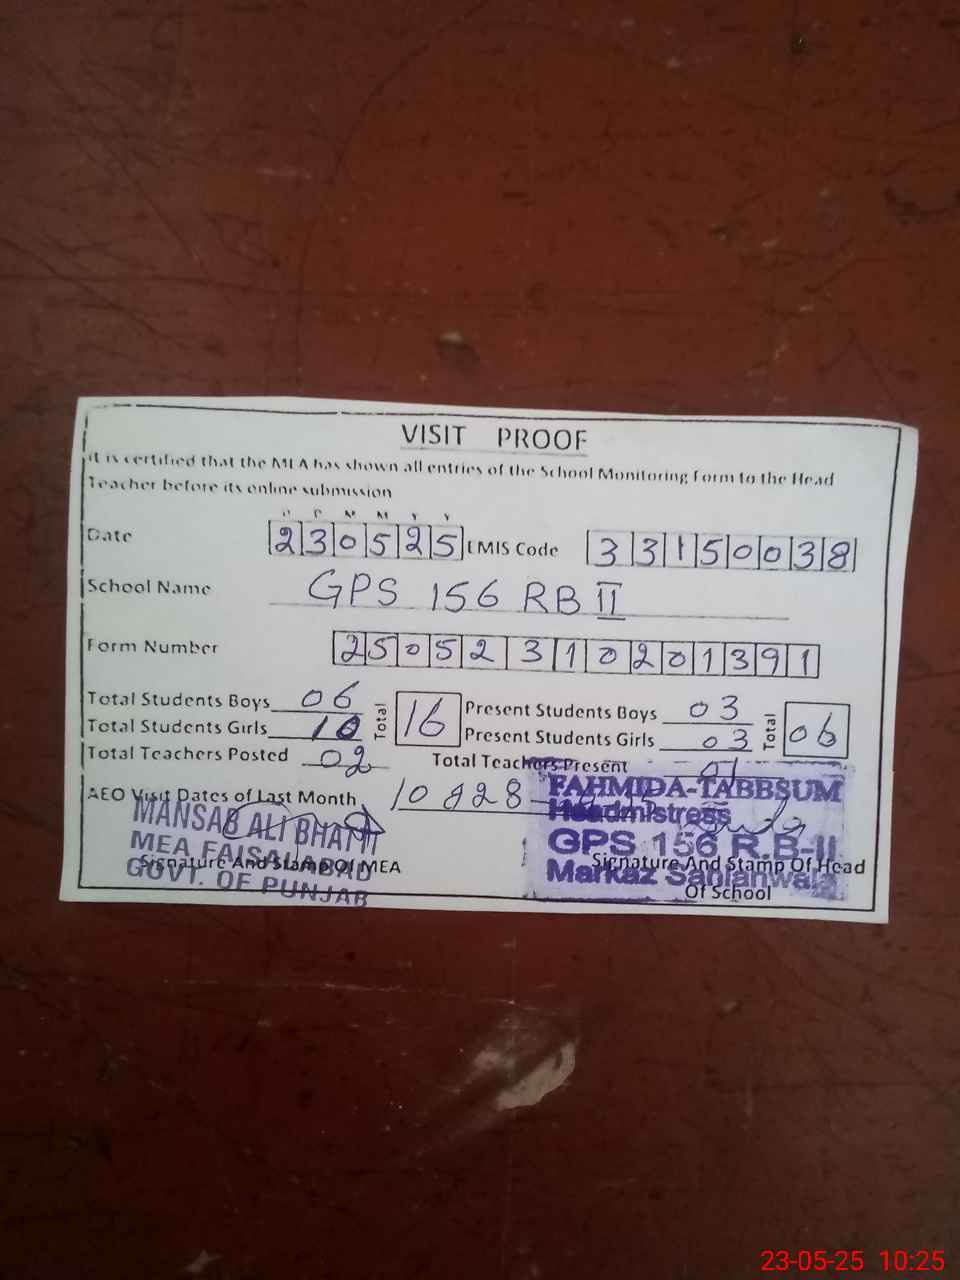 VISIT PROOF
it is certified that the MEA has shown all entries of the School Monitoring Form to the Head
Teacher before its online submission
D D M M Y Y
Date 230525 EMIS Code 33150038
School Name GPS 156 RB II
Form Number 25052310201391
Total Students Boys 06 Total 16 Present Students Boys 03 Total 06
Total Students Girls 10 Present Students Girls 03
Total Teachers Posted 02 Total Teachers Present 01
AEO Visit Dates of Last Month
MANSAB ALI BHATTI
MEA FAISALABAD
GOVT. OF PUNJAB
Signature And Stamp Of MEA
FAHMIDA-TABBSUM
Headmistress
GPS 156 R.B-II
Markaz
Signature And Stamp Of Head
Of School
23-05-25 10:25